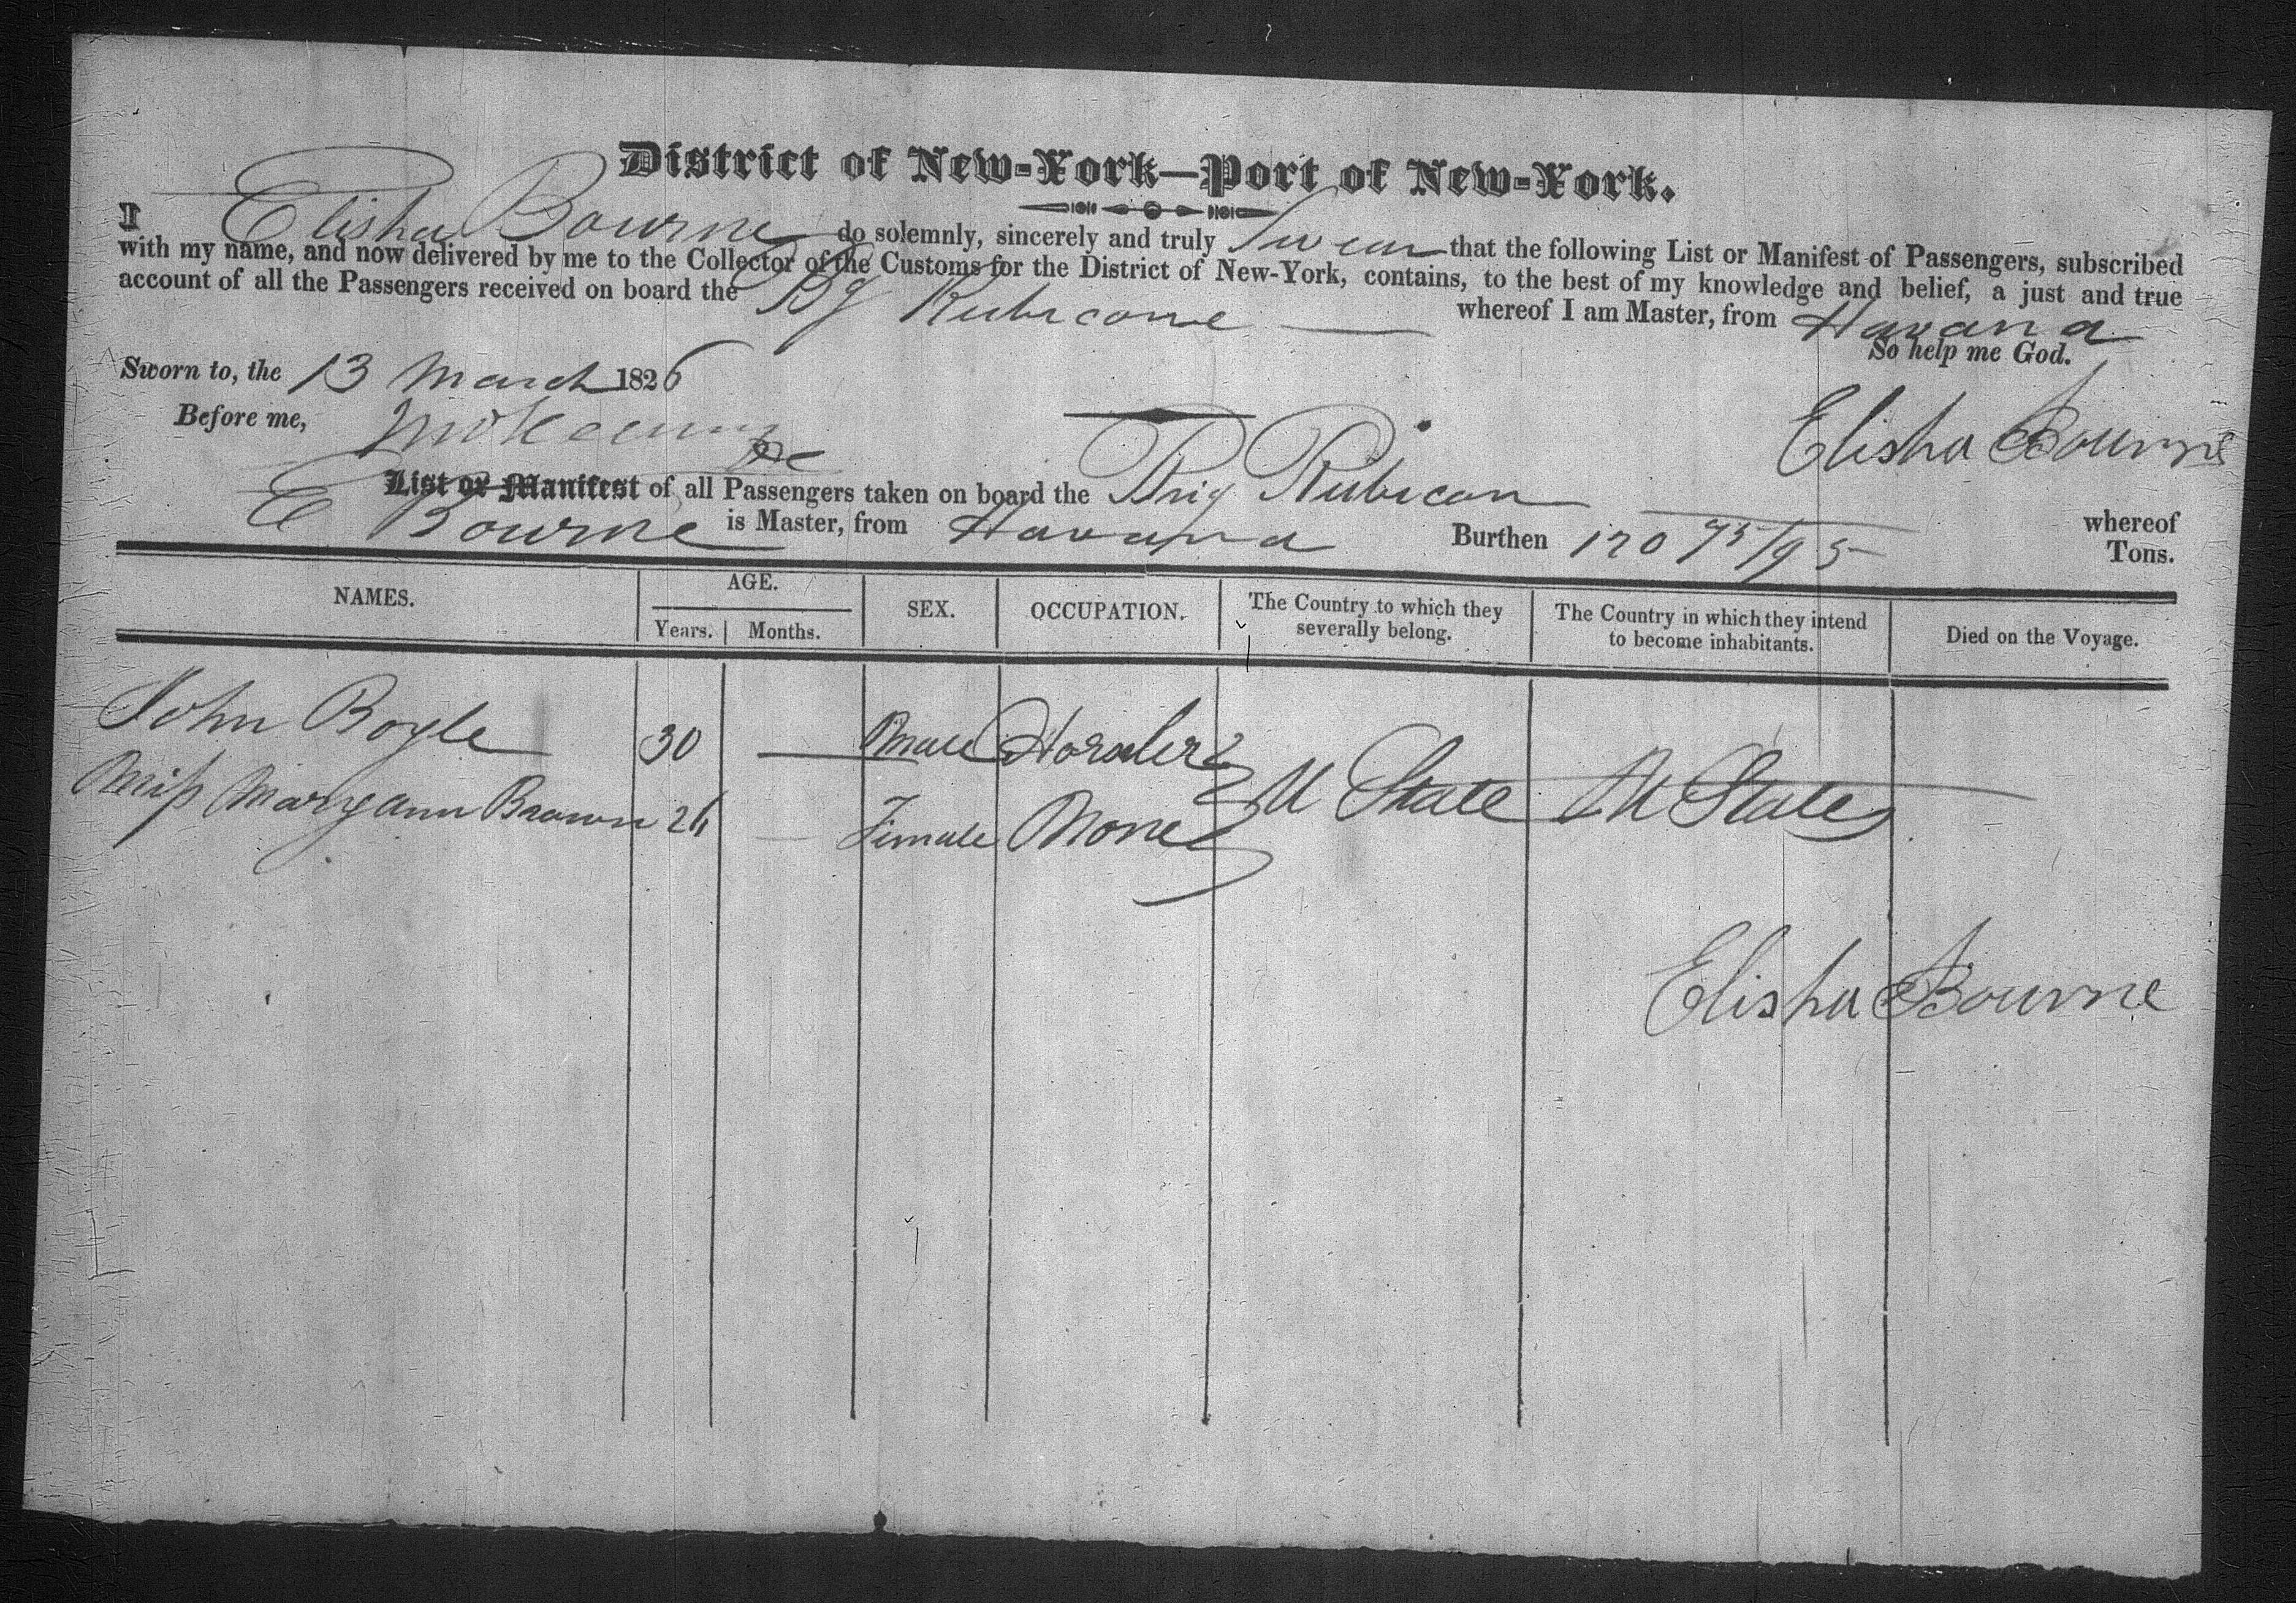 District of New-York—Port of New-York.
I Elisha Bourne do solemnly, sincerely and truly Swear that the following List or Manifest of Passengers, subscribed
with my name, and now delivered by me to the Collector of the Customs for the District of New-York, contains, to the best of my knowledge and belief, a just and true
account of all the Passengers received on board the Bg Rubicone whereof I am Master, from Havana
So help me God.
Sworn to, the 13 March 1826
Before me,
Elisha Bourne
List or Manifest of all Passengers taken on board the Brig Rubicon whereof
E Bourne is Master, from Havana Burthen 170 75/95 Tons.
NAMES. AGE. SEX. OCCUPATION. The Country to which they severally belong. The Country in which they intend to become inhabitants. Died on the Voyage.
Years. Months.
John Boyle 30 Male
Miss Maryann Brown 26 Female None U State U States
Elisha Bourne